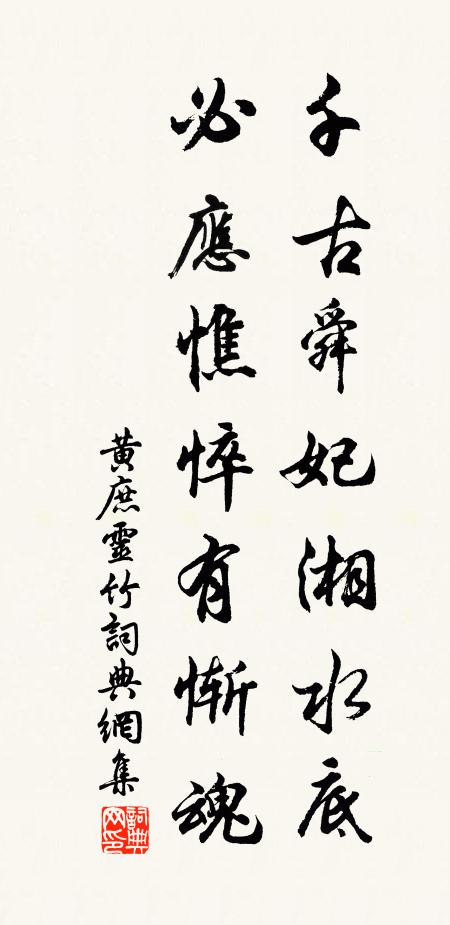 千古舜妃湘水底
必應憔悴有慚魂
黃庶靈竹詞典網集
詞典網印